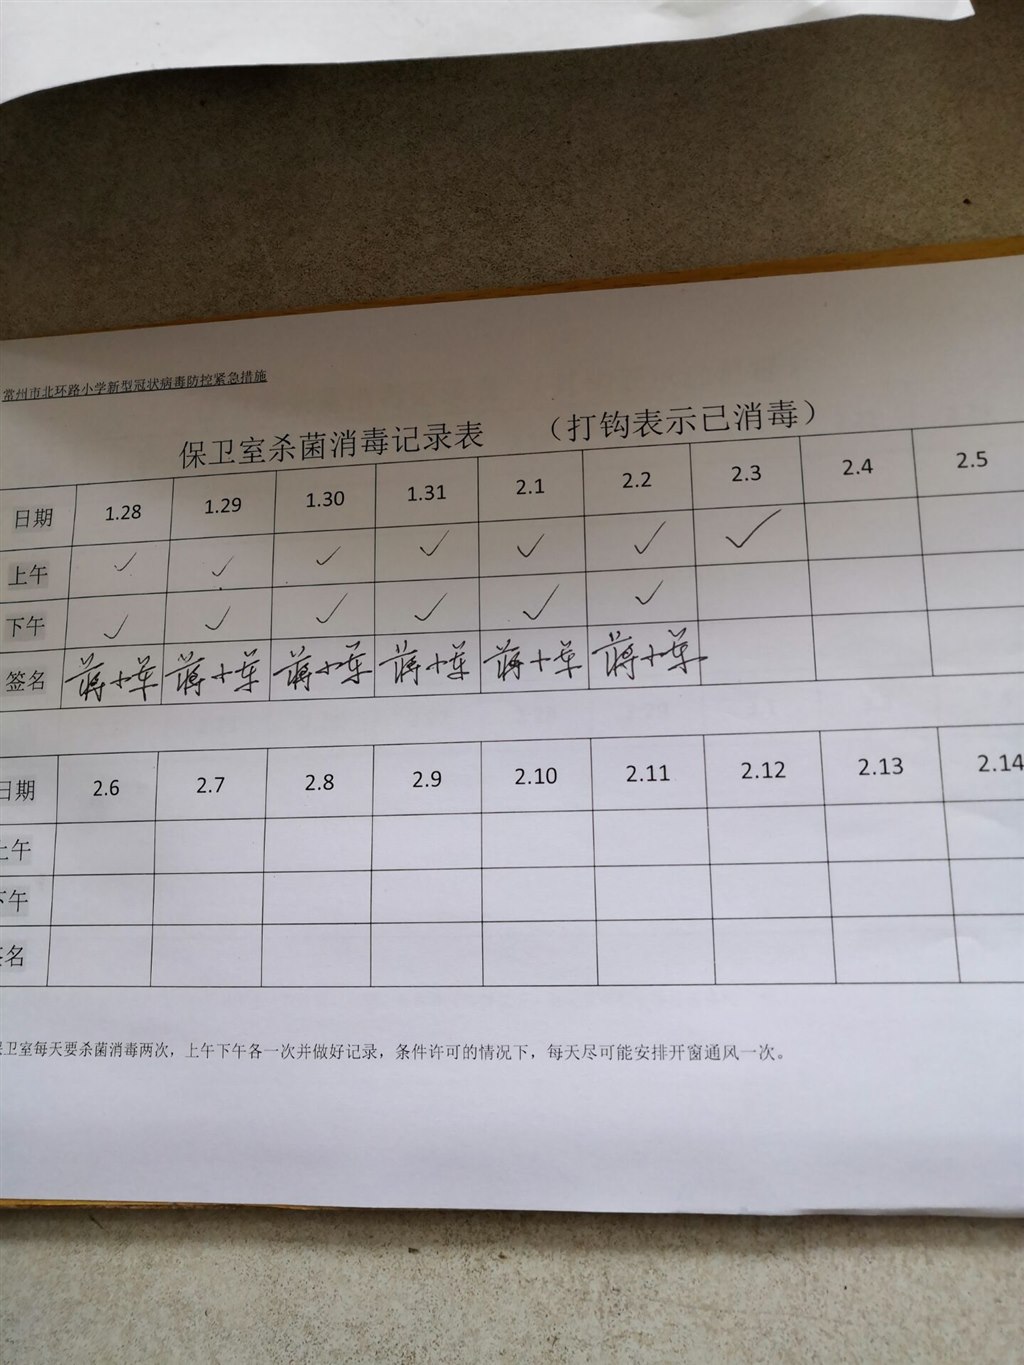 常州市北环路小学新型冠状病毒防控紧急措施
保卫室杀菌消毒记录表 （打钩表示已消毒）
日期 1.28 1.29 1.30 1.31 2.1 2.2 2.3 2.4 2.5
上午 ✓ ✓ ✓ ✓ ✓ ✓ ✓
下午 ✓ ✓ ✓ ✓ ✓ ✓
签名 蒋小军 蒋小军 蒋小军 蒋小军 蒋小军 蒋小军
日期 2.6 2.7 2.8 2.9 2.10 2.11 2.12 2.13 2.14
上午
下午
签名
保卫室每天要杀菌消毒两次，上午下午各一次并做好记录，条件许可的情况下，每天尽可能安排开窗通风一次。